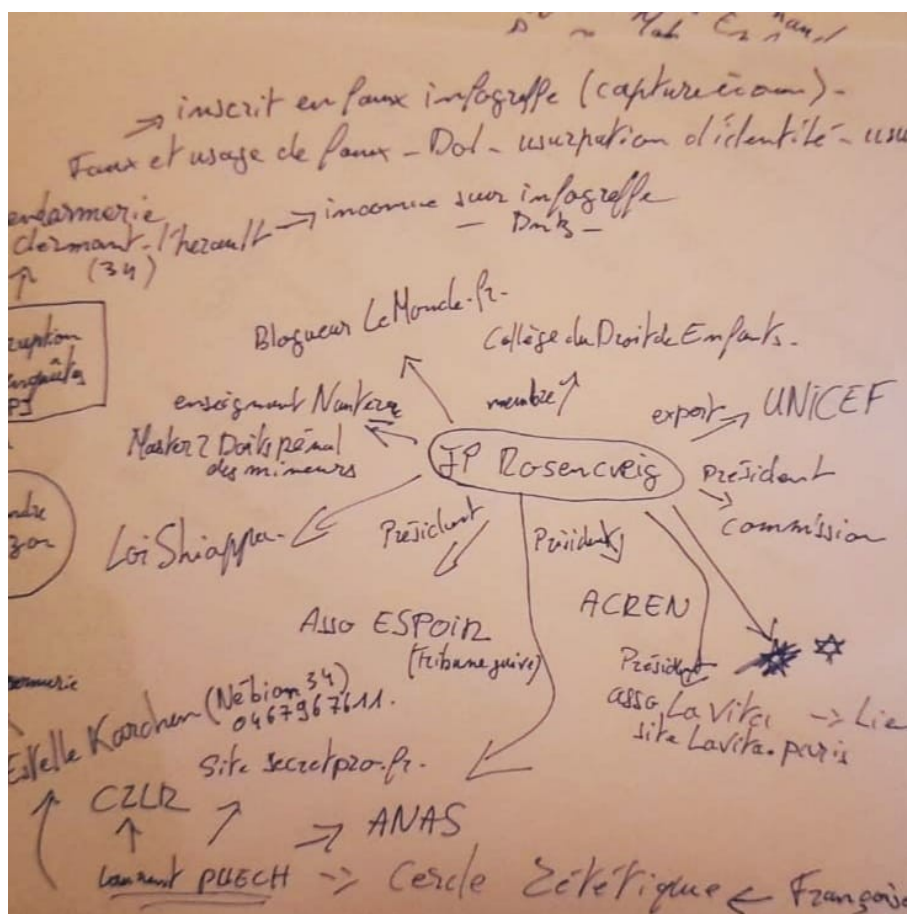 → inscrit en faux infogreffe (capture écran) -
Faux et usage de faux - Dol - usurpation d'identité - usu
endarmerie
clermont-l'herault → inconnue sur infogreffe
(34)
Blogueur LeMonde.fr.
Collège du Droit de Enfants.
ruption
enquêtes
PJ
enseignant Nanterre
membre
expert
UNICEF
Master 2 Doits pénal
des mineurs
JP Rosencveig
Président
commission
ndre
zon
Loi Shiappa.
Président
Président
Asso ESPOIR
(Tribune juive)
ACREN
Président
asso La Vita → Lie
site Lavita.paris
Estelle Karchen (Nébian 34)
0467967611.
Site secretpro.fr.
CZLR
→ ANAS
Laurent PUECH → Cercle Zététique ← Françoise